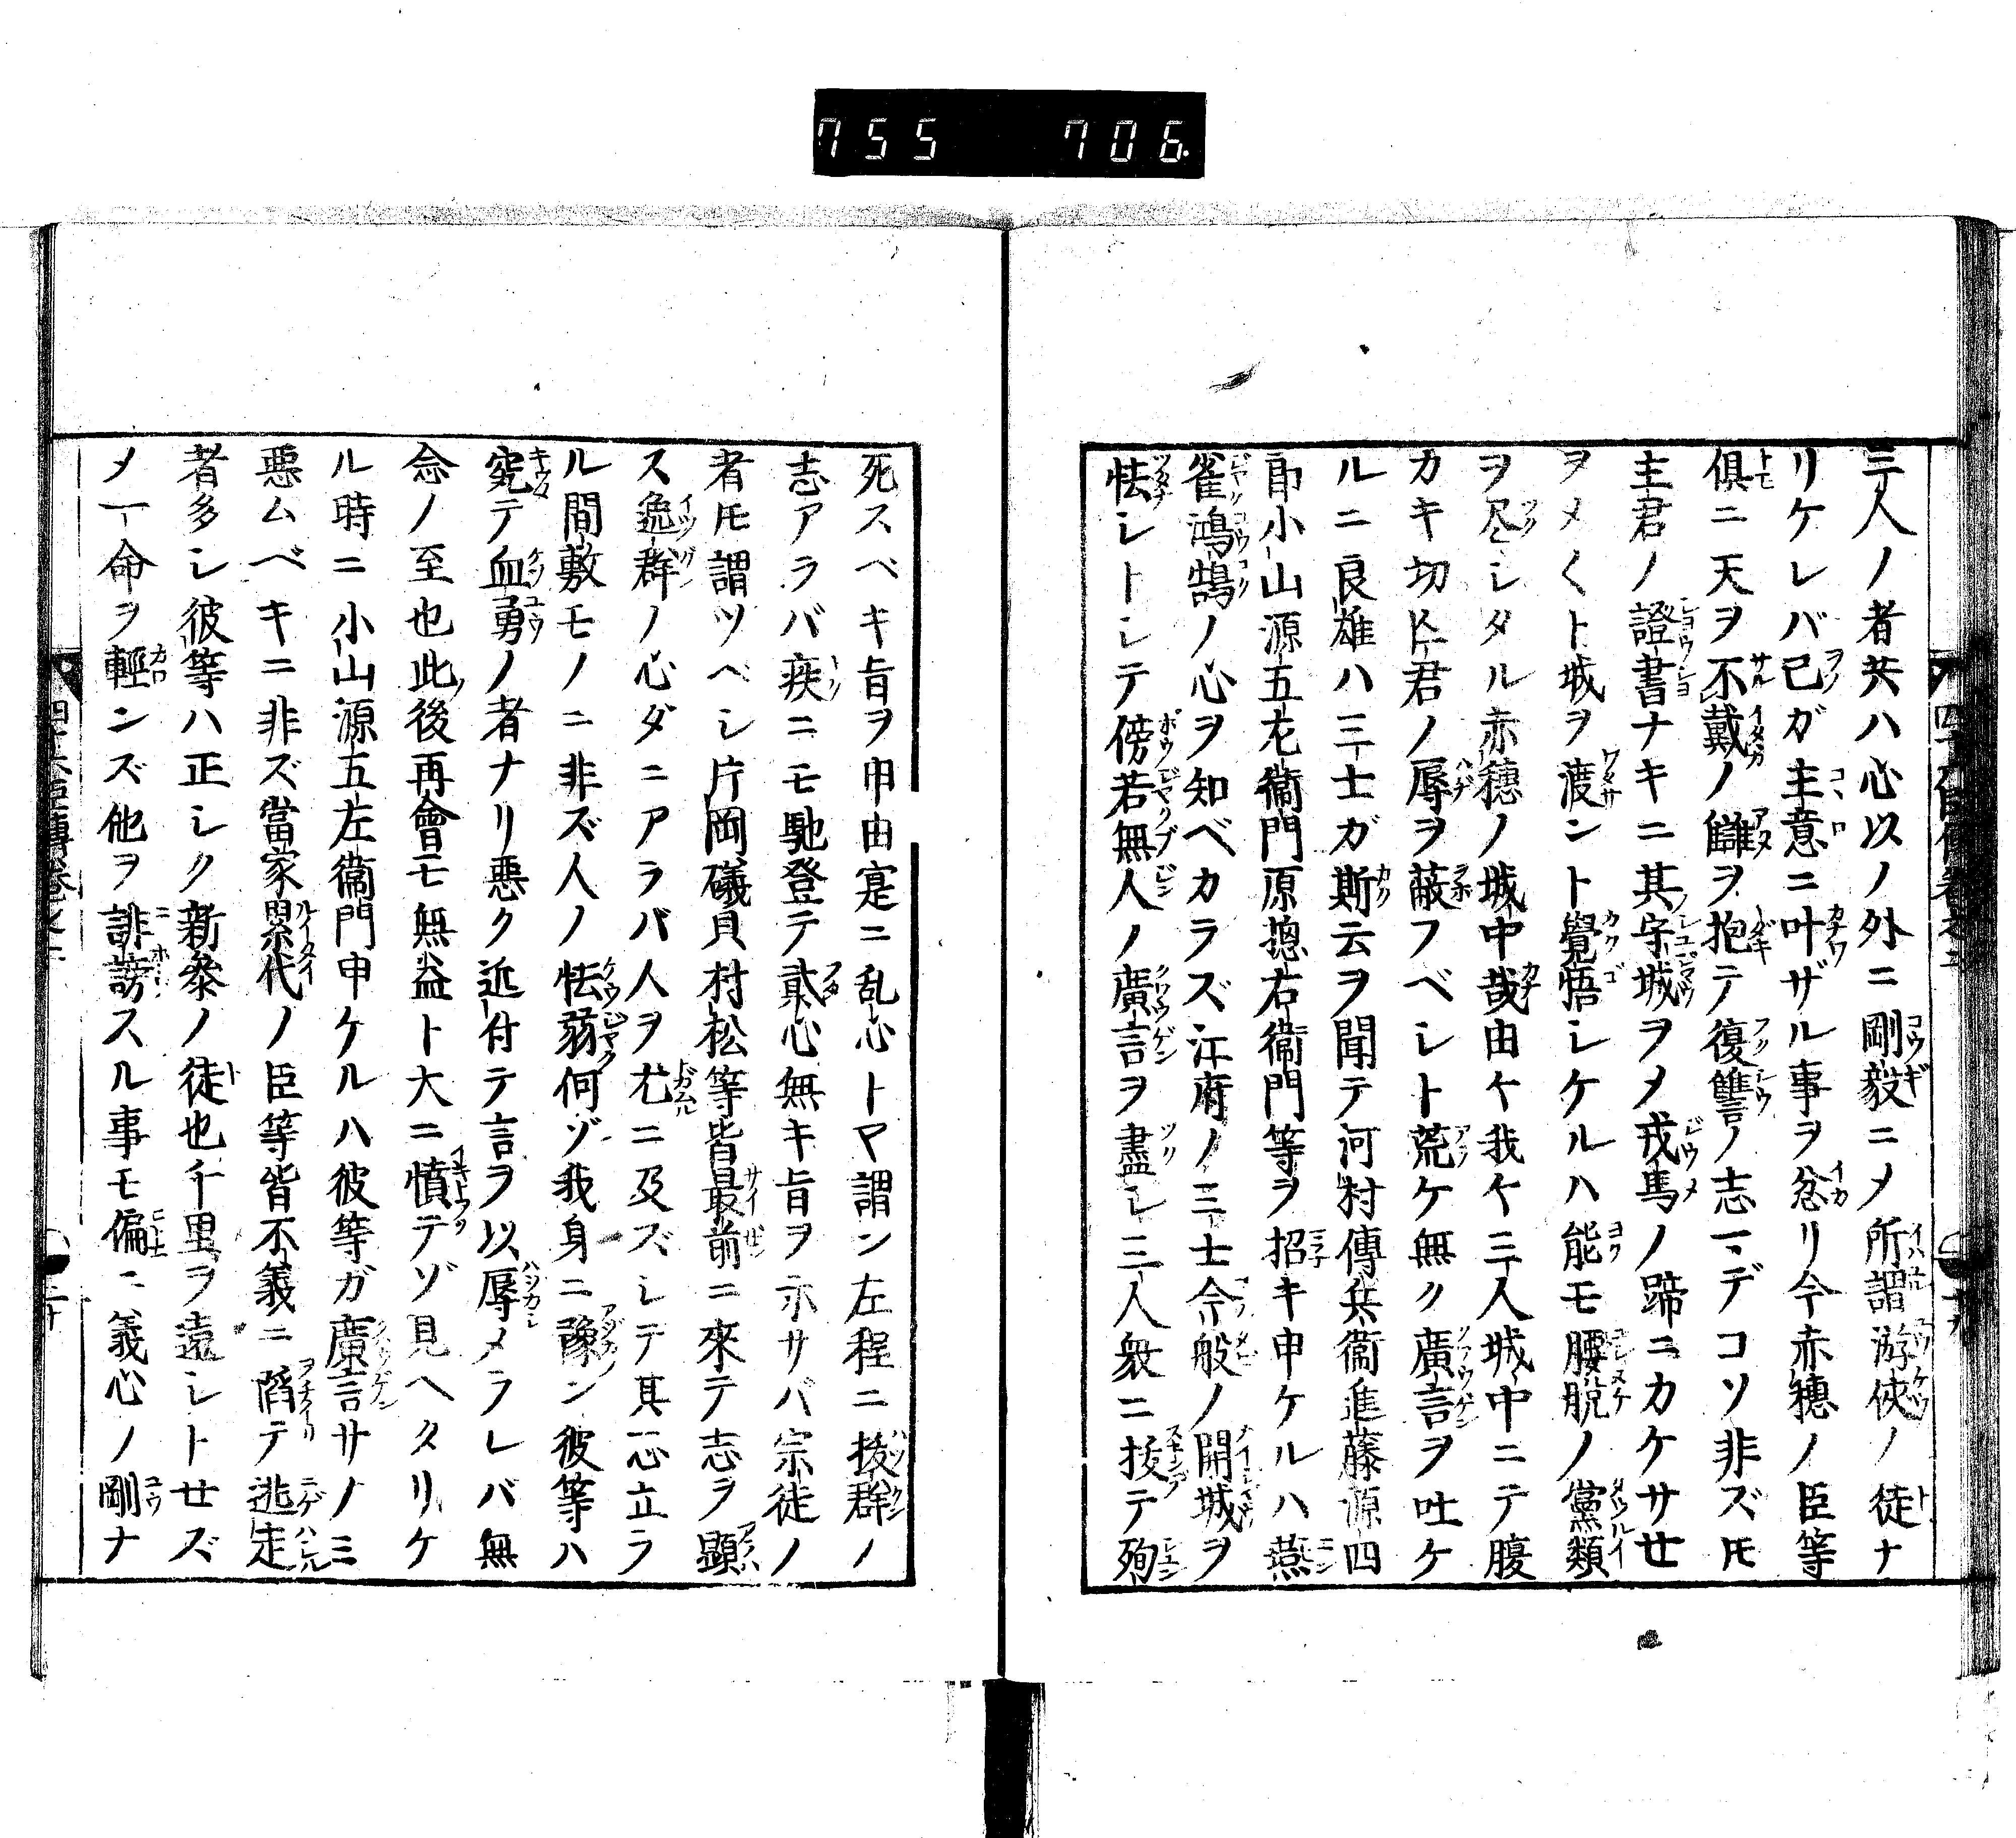 755 706
三人ノ者共ハ心以ノ外ニ剛毅ニメ所謂游侠ノ徒ナ
リケレバ己ガ主意ニ叶ザル事ヲ忿リ今赤穂ノ臣等
倶ニ天ヲ不戴ノ讎ヲ抱テ復讐ノ志一デコソ非ズ𪜈
主君ノ證書ナキニ其守城ヲメ戎馬ノ蹄ニカケサセ
ヲメ〱ト城ヲ渡ント覺悟シケルハ能モ腰脱ノ黨類
ヲ尽シタル赤穂ノ城中哉由ヤ我々三人城中ニテ腹
カキ切𪜈君ノ辱ヲ蔽フベシト荒ケ無ク廣言ヲ吐ケ
ルニ良雄ハ三士ガ斯云ヲ聞テ河村傳兵衞進藤源四
郎小山源五左衞門原揔右衞門等ヲ招キ申ケルハ燕
雀鴻鵠ノ心ヲ知ベカラズ江府ノ三士今般ノ開城ヲ
怯シトシテ傍若無人ノ廣言ヲ盡シ三人衆ニ抜テ殉
死スベキ旨ヲ申由寔ニ乱心トマ謂ン左程ニ抜群ノ
志アラバ疾ニモ馳登テ貳心無キ旨ヲ示サバ宗徒ノ
者𪜈謂ツベシ片岡礒貝村松等皆最前ニ來テ志ヲ顕
ス逸群ノ心ダニアラバ人ヲ尤ニ及ズシテ其心立ラ
ル間敷モノニ非ズ人ノ怯弱何ゾ我身ニ豫ン彼等ハ
究テ血勇ノ者ナリ悪ク近付テ言ヲ以辱メラレバ無
念ノ至也此後再會モ無益ト大ニ憤テゾ見ヘタリケ
ル時ニ小山源五左衞門申ケルハ彼等ガ廣言サノミ
悪ムベキニ非ズ當家累代ノ臣等皆不義ニ陷テ逃走
者多シ彼等ハ正シク新參ノ徒也千里ヲ遠シトセズ
メ一命ヲ輕ンズ他ヲ誹謗スル事モ偏ニ義心ノ剛ナ